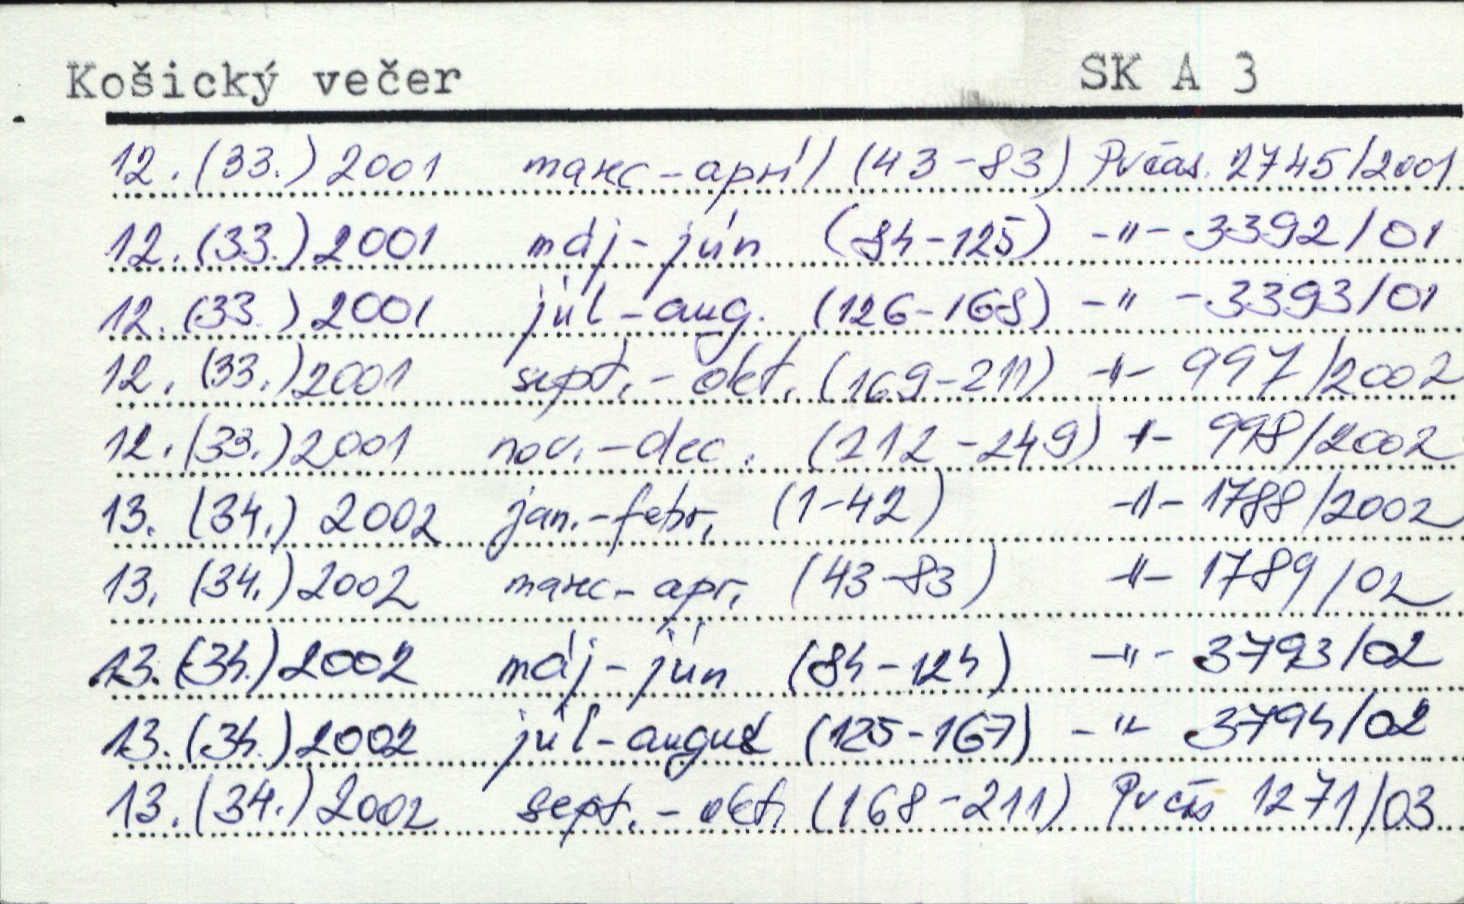 Košický večer SK A 3
12. (33.) 2001 marec-apríl (43-83) Pv čas. 2745/2001
12. (33.) 2001 máj-jún (84-125) -"- 3392/01
12. (33.) 2001 júl-aug. (126-168) -"- 3393/01
12. (33.) 2001 sept.-okt. (169-211) -"- 997/2002
12. (33.) 2001 nov.-dec. (212-249) -"- 998/2002
13. (34.) 2002 jan.-febr. (1-42) -"- 1788/2002
13. (34.) 2002 marec-apr. (43-83) -"- 1789/02
13. (34.) 2002 máj-jún (84-124) -"- 3793/02
13. (34.) 2002 júl-august (125-167) -"- 3794/02
13. (34.) 2002 sept.-okt. (168-211) Pv čas 1271/03